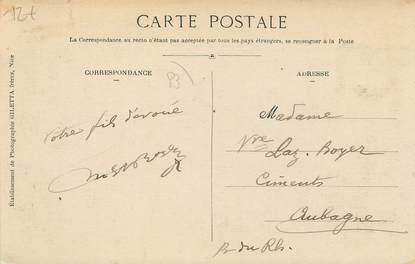 12t
CARTE POSTALE
La Correspondance au recto n'étant pas acceptée par tous les pays étrangers, se renseigner à la Poste
CORRESPONDANCE
ADRESSE
83
Votre fils dévoué
Madame
Vve Laz. Boyer
Ciments
Aubagne
B. du Rh.
Etablissement de Photographie GILETTA frères, Nice